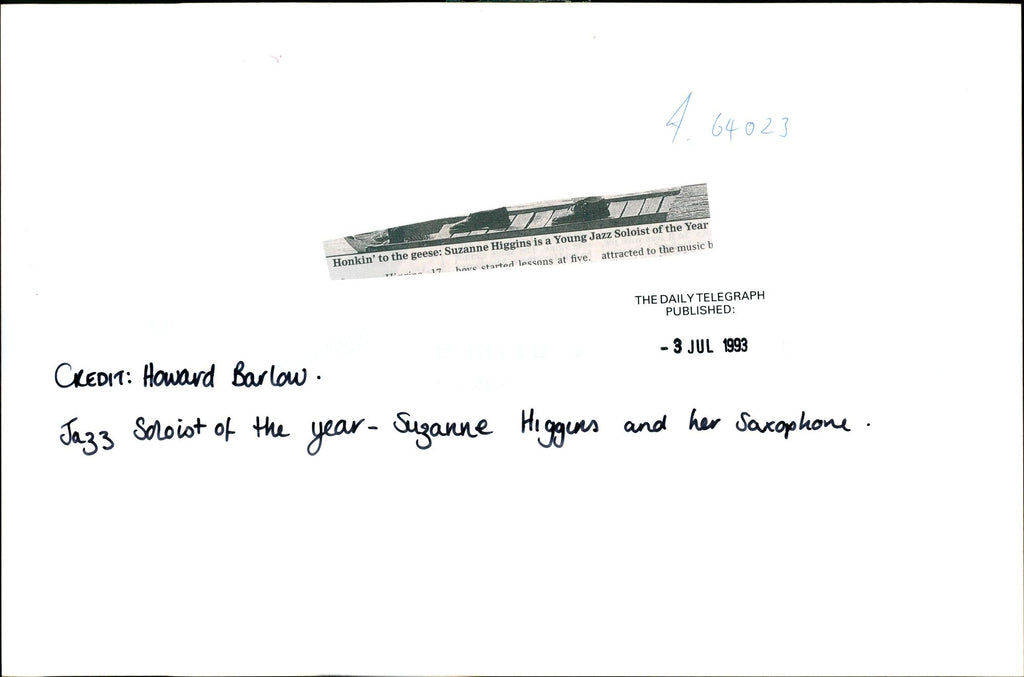 A. 64023
Honkin' to the geese: Suzanne Higgins is a Young Jazz Soloist of the Year
17 boys started lessons at five. attracted to the music b
THE DAILY TELEGRAPH
PUBLISHED:
- 3 JUL 1993
CREDIT: Howard Barlow.
Jazz Soloist of the year - Suzanne Higgins and her Saxophone.